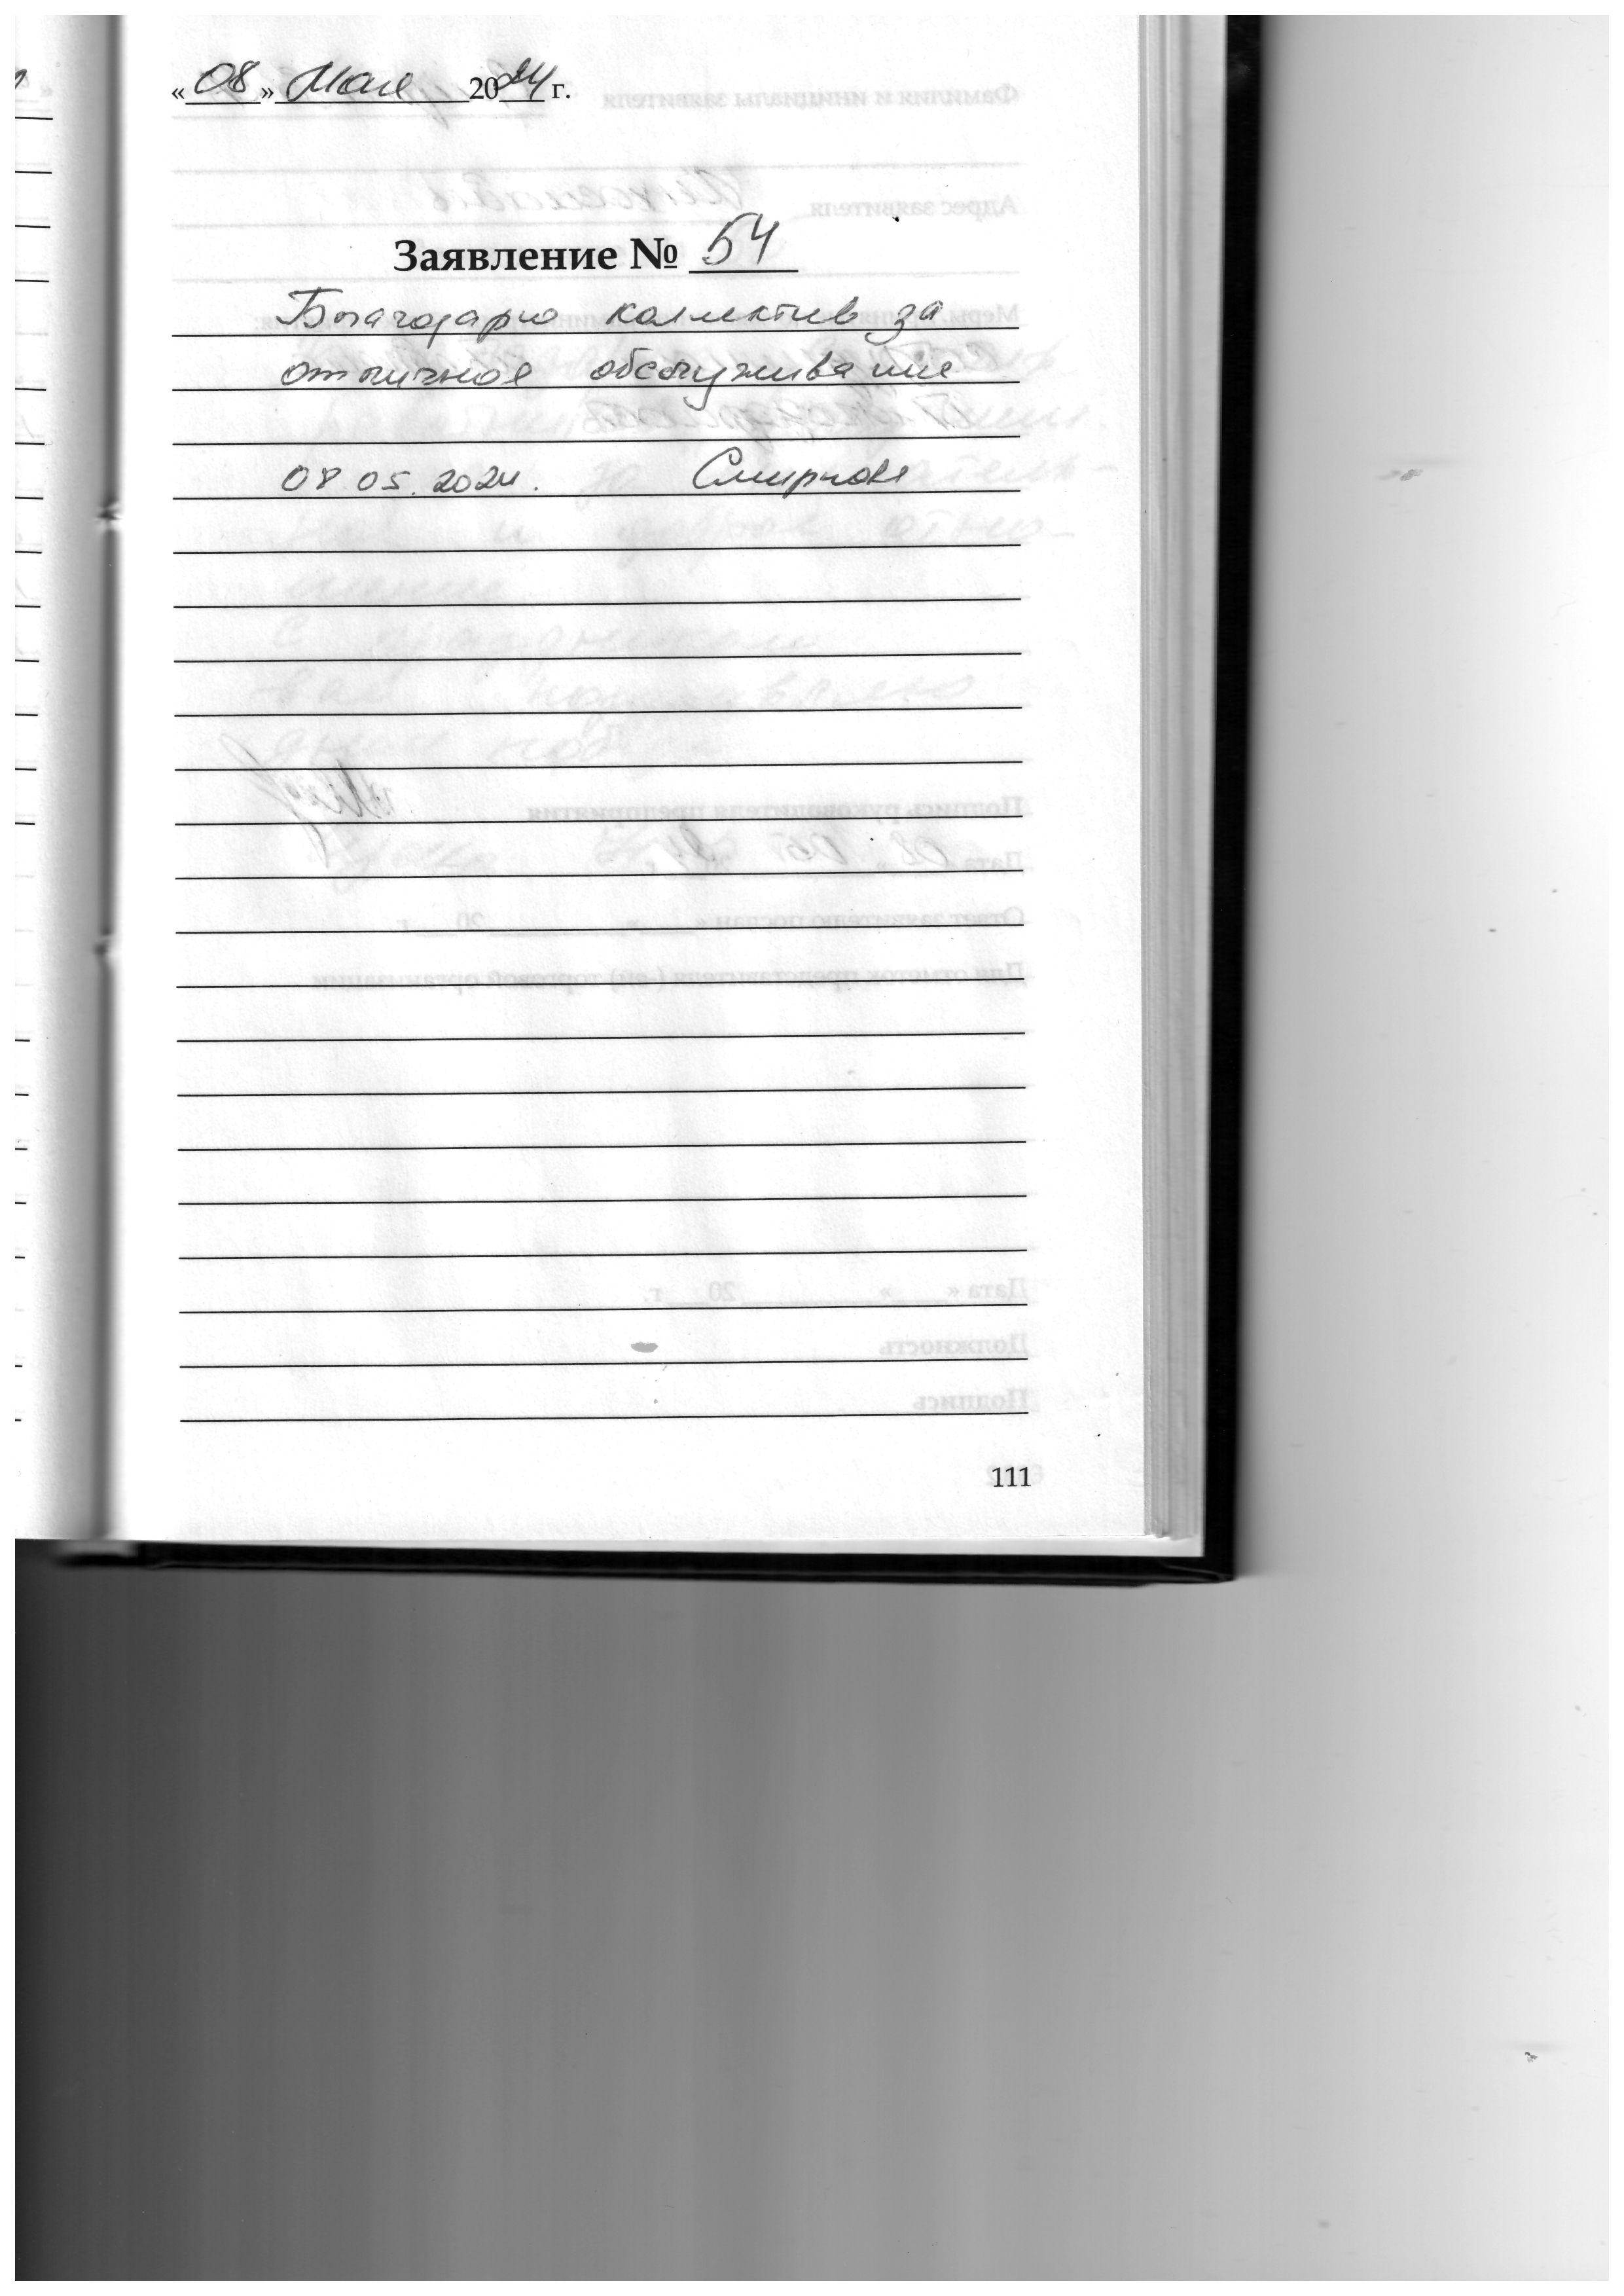 «08» Мая 2024 г.
Заявление № 54
Благодарю коллектив за
отличное обслуживание
08.05.2024. Смирнова
111